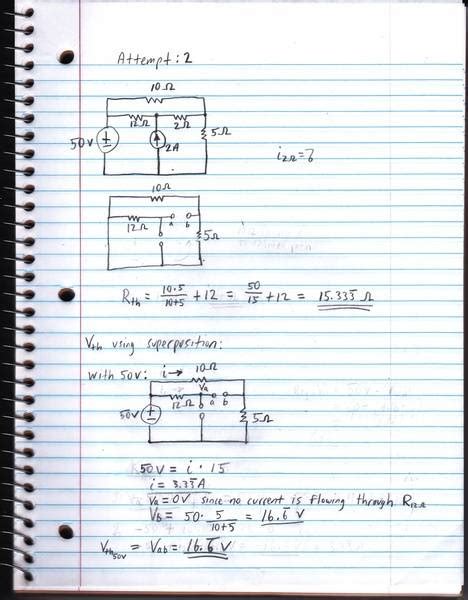 Attempt: 2
10Ω
12Ω
2Ω
50V
2A
5Ω
i2Ω=?
10Ω
12Ω
a
b
5Ω
Rth = 10·5/10+5 + 12 = 50/15 + 12 = 15.333̅ Ω
Vth using superposition:
with 50V: i → 10Ω
Va
12Ω
a
b
50V
5Ω
50V = i · 15
i = 3.33̅A
Va = 0V since no current is flowing through R12Ω
Vb = 50 · 5/10+5 = 16.6̅ V
Vth50V = Vab = 16.6̅ V